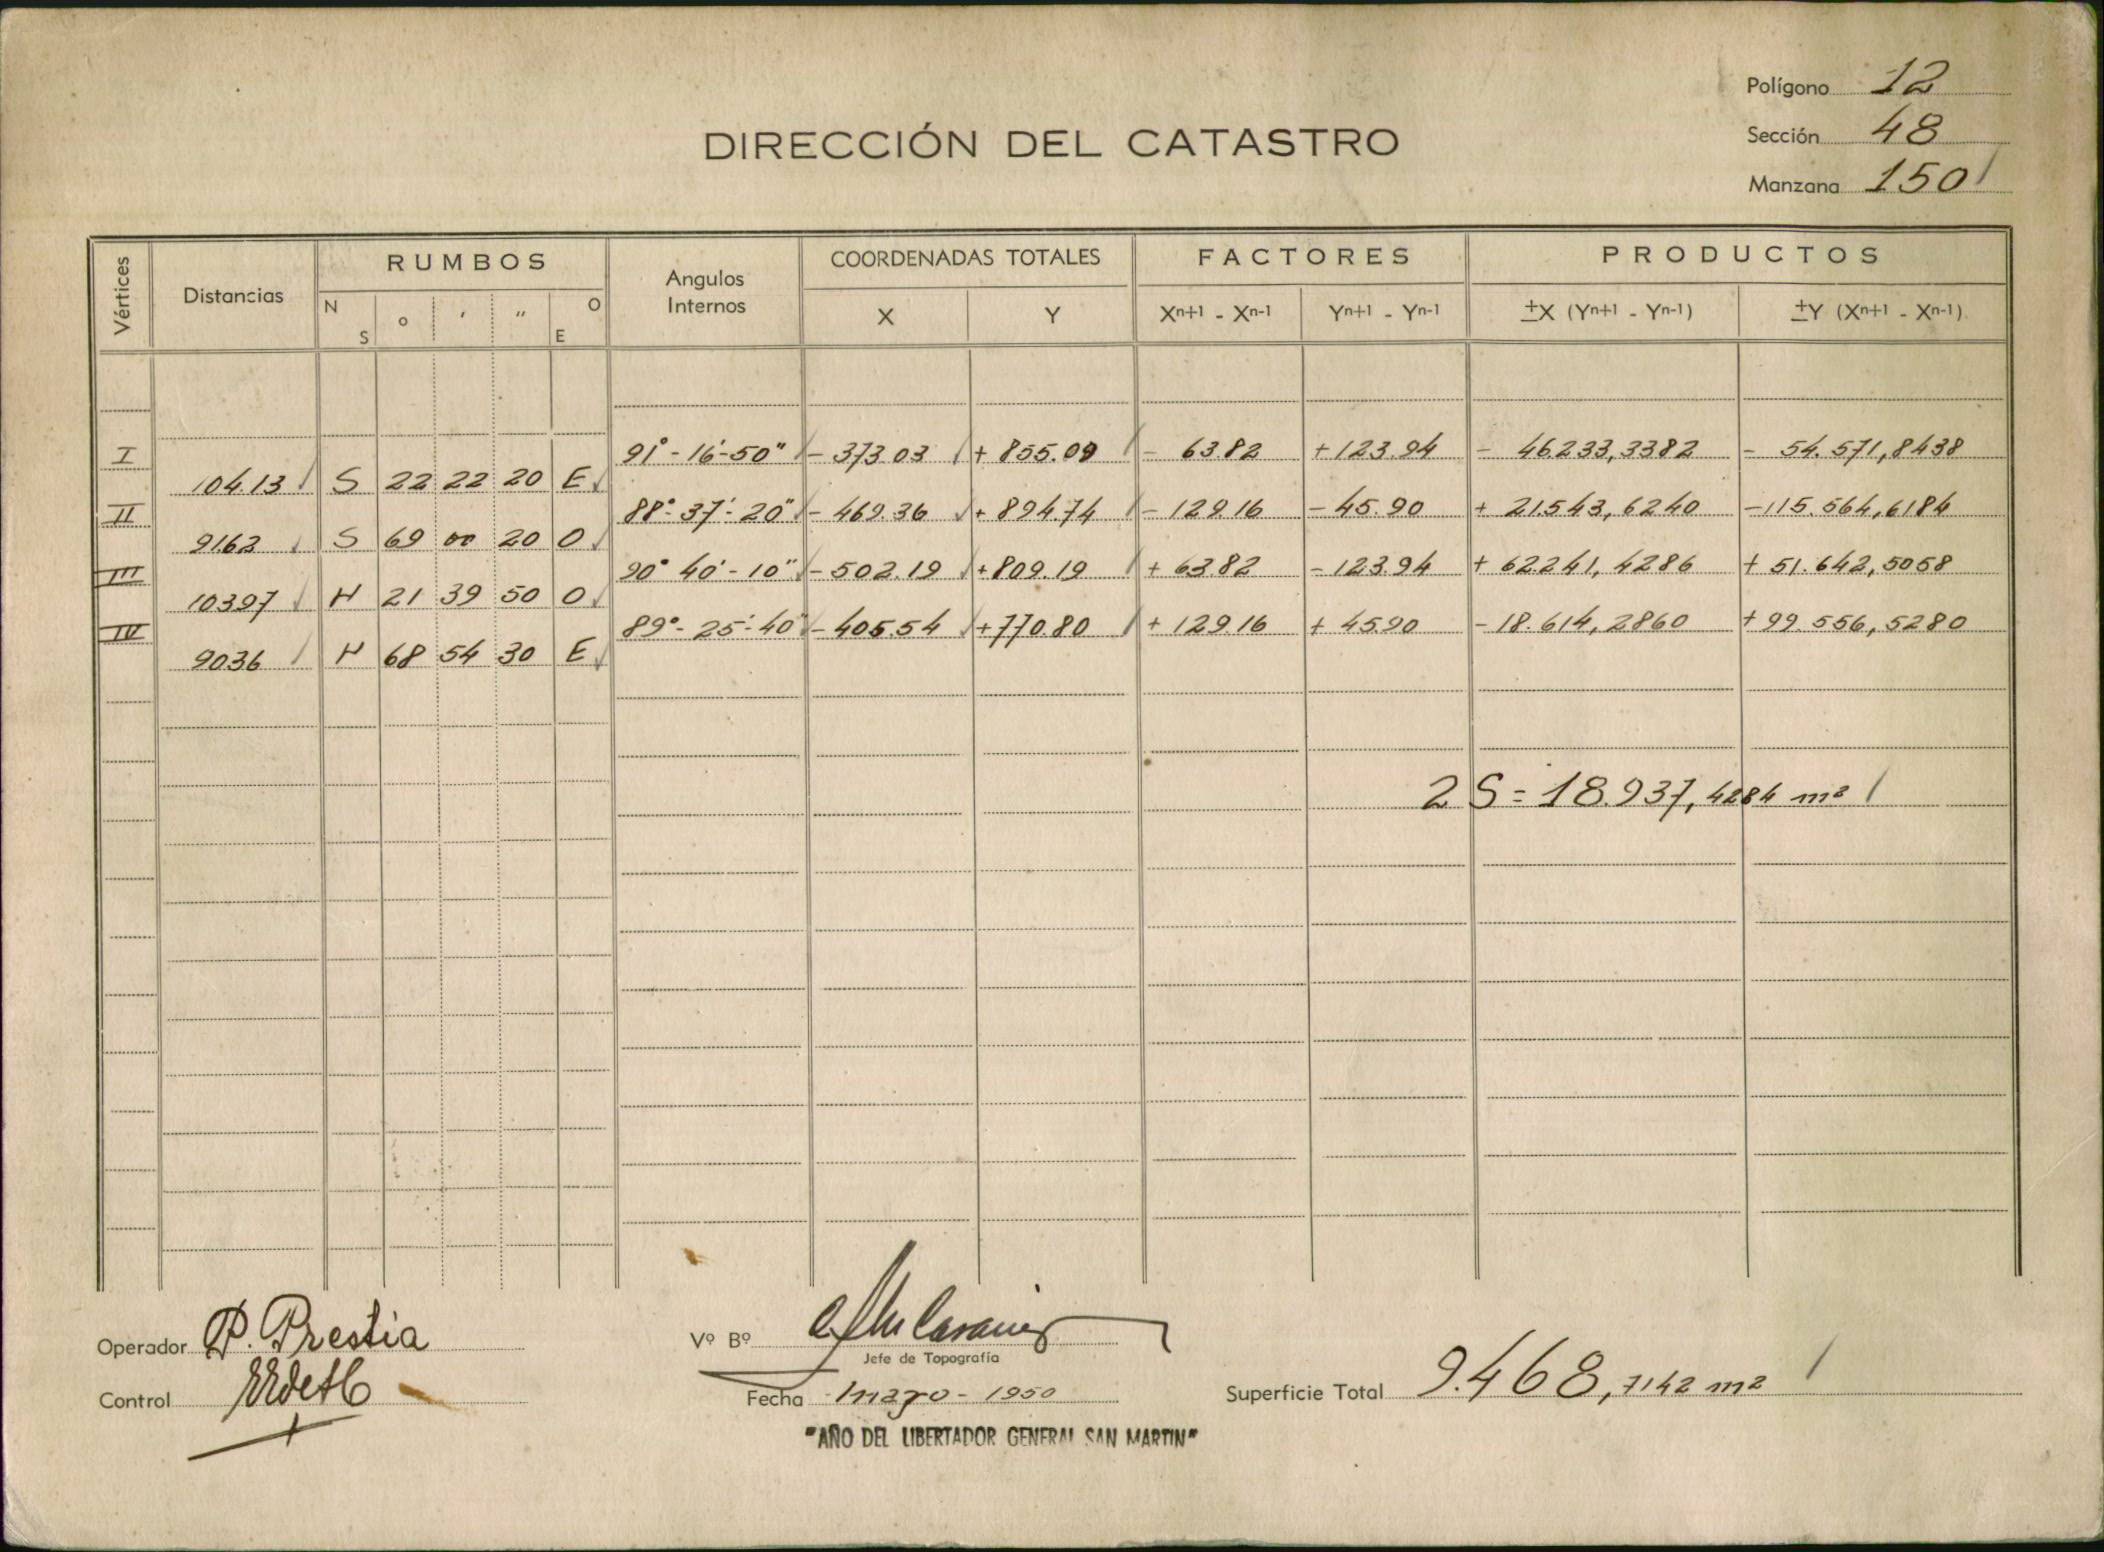 Polígono 12
DIRECCIÓN DEL CATASTRO
Sección 48
Manzana 150
Vértices Distancias RUMBOS Angulos Internos COORDENADAS TOTALES FACTORES PRODUCTOS
N S ° ' " O E X Y Xn+1 - Xn-1 Yn+1 - Yn-1 ±X (Yn+1 - Yn-1) ±Y (Xn+1 - Xn-1)
I 91° - 16' - 50" - 373.03 + 855.09 - 63.82 + 123.94 - 46.233,3382 - 54.571,8438
104.13 S 22 22 20 E
II 88° - 37' - 20" - 469.36 + 894.74 - 129.16 - 45.90 + 21.543,6240 - 115.564,6184
91.63 S 69 00 20 O
III 90° 40' - 10" - 502.19 + 809.19 + 63.82 - 123.94 + 62.241,4286 + 51.642,5058
103.97 N 21 39 50 O
IV 89° - 25' - 40" - 405.54 + 770.80 + 129.16 + 45.90 - 18.614,2860 + 99.556,5280
90.36 N 68 54 30 E
2 S = 18.937,4284 m²
Operador P. Prestia
Vº Bº
Jefe de Topografía
Control
Fecha mayo - 1950
Superficie Total 9.468,7142 m²
"AÑO DEL LIBERTADOR GENERAL SAN MARTIN"